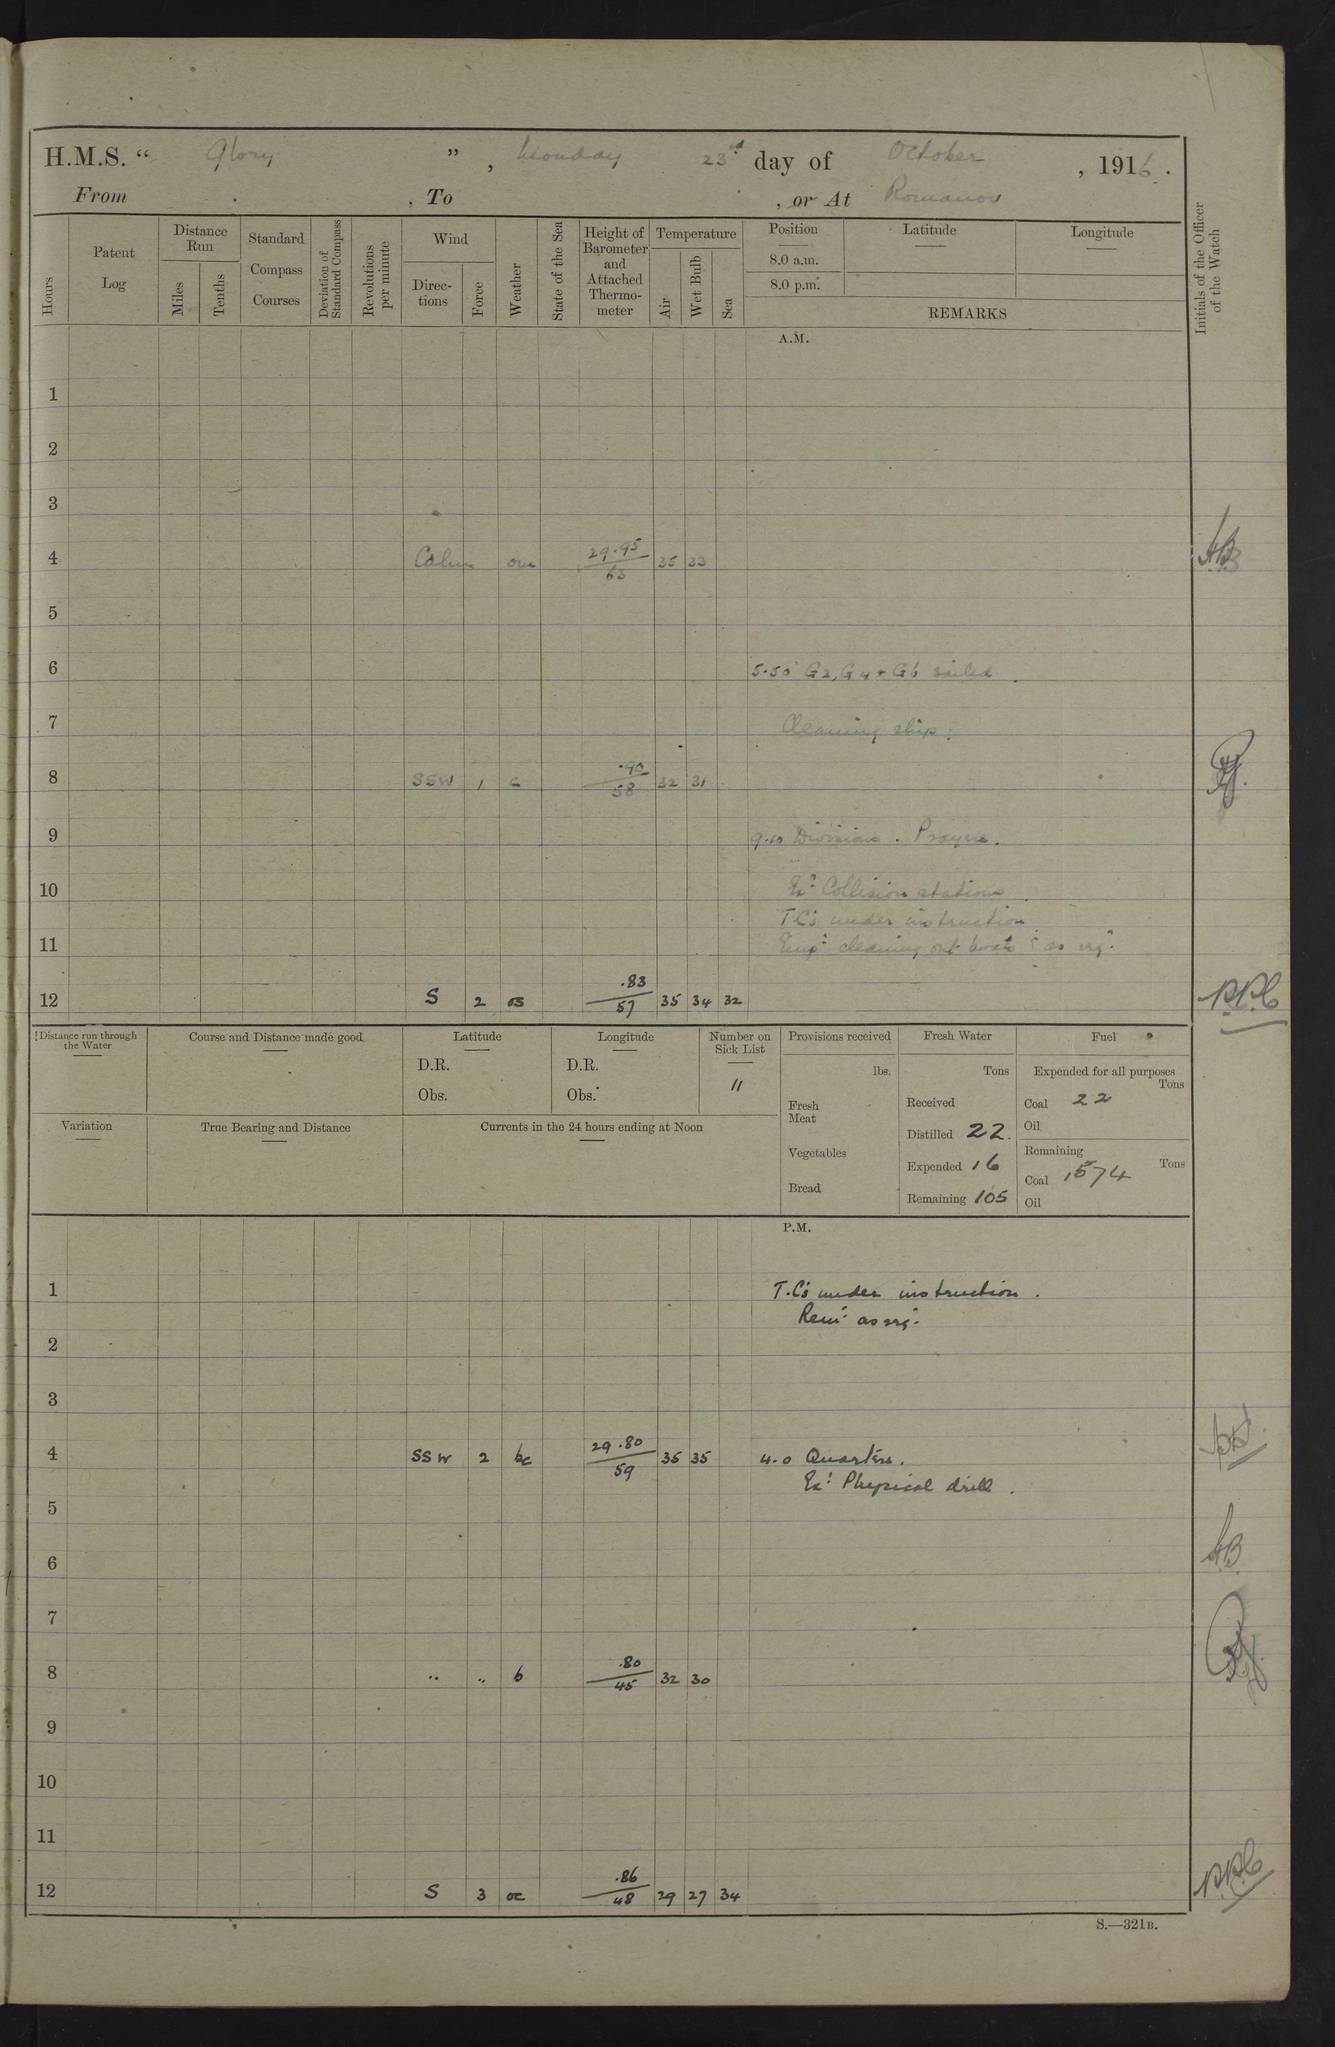 H.M.S. “ Glory ” , Monday 23rd day of October , 1916.
From , To , or At Romanov
Hours
Patent Log
Distance Run
Miles
Tenths
Standard Compass Courses
Deviation of Standard Compass
Revolutions per minute
Wind
Direc-tions
Force
Weather
State of the Sea
Height of Barometer and Attached Thermo-meter
Temperature
Air
Wet Bulb
Sea
Position
8.0 a.m.
8.0 p.m.
Latitude
Longitude
REMARKS
Initials of the Officer of the Watch
A.M.
1
2
3
4 Calm om 29.95/63 35 33
5
6 5.50 G2, G4 + G6 sailed.
7 Cleaning ship.
8 SSW 1 c .90/58 32 31
9 9.10 Divisions. Prayers.
10 Exd Collision stations.
T.C's under instruction
11 Empd cleaning out boats & as reqd.
12 S 2 os .83/57 35 34 32
Distance run through the Water
Course and Distance made good
Latitude
D.R.
Obs.
Longitude
D.R.
Obs.
Number on Sick List
11
Provisions received
lbs.
Fresh Meat
Vegetables
Bread
Fresh Water
Tons
Received
Distilled 22.
Expended 16
Remaining 105
Fuel
Expended for all purposes
Tons
Coal 22
Oil
Remaining
Tons
Coal 1574
Oil
Variation
True Bearing and Distance
Currents in the 24 hours ending at Noon
P.M.
1 T.C's under instruction.
Remr as reqd.
2
3
4 SSW 2 bc 29.80/59 35 35 4.0 Quarters.
Exd Physical drill.
5
6
7
8 " " b .80/45 32 30
9
10
11
12 S 3 oc .86/48 29 27 34
S.—321B.